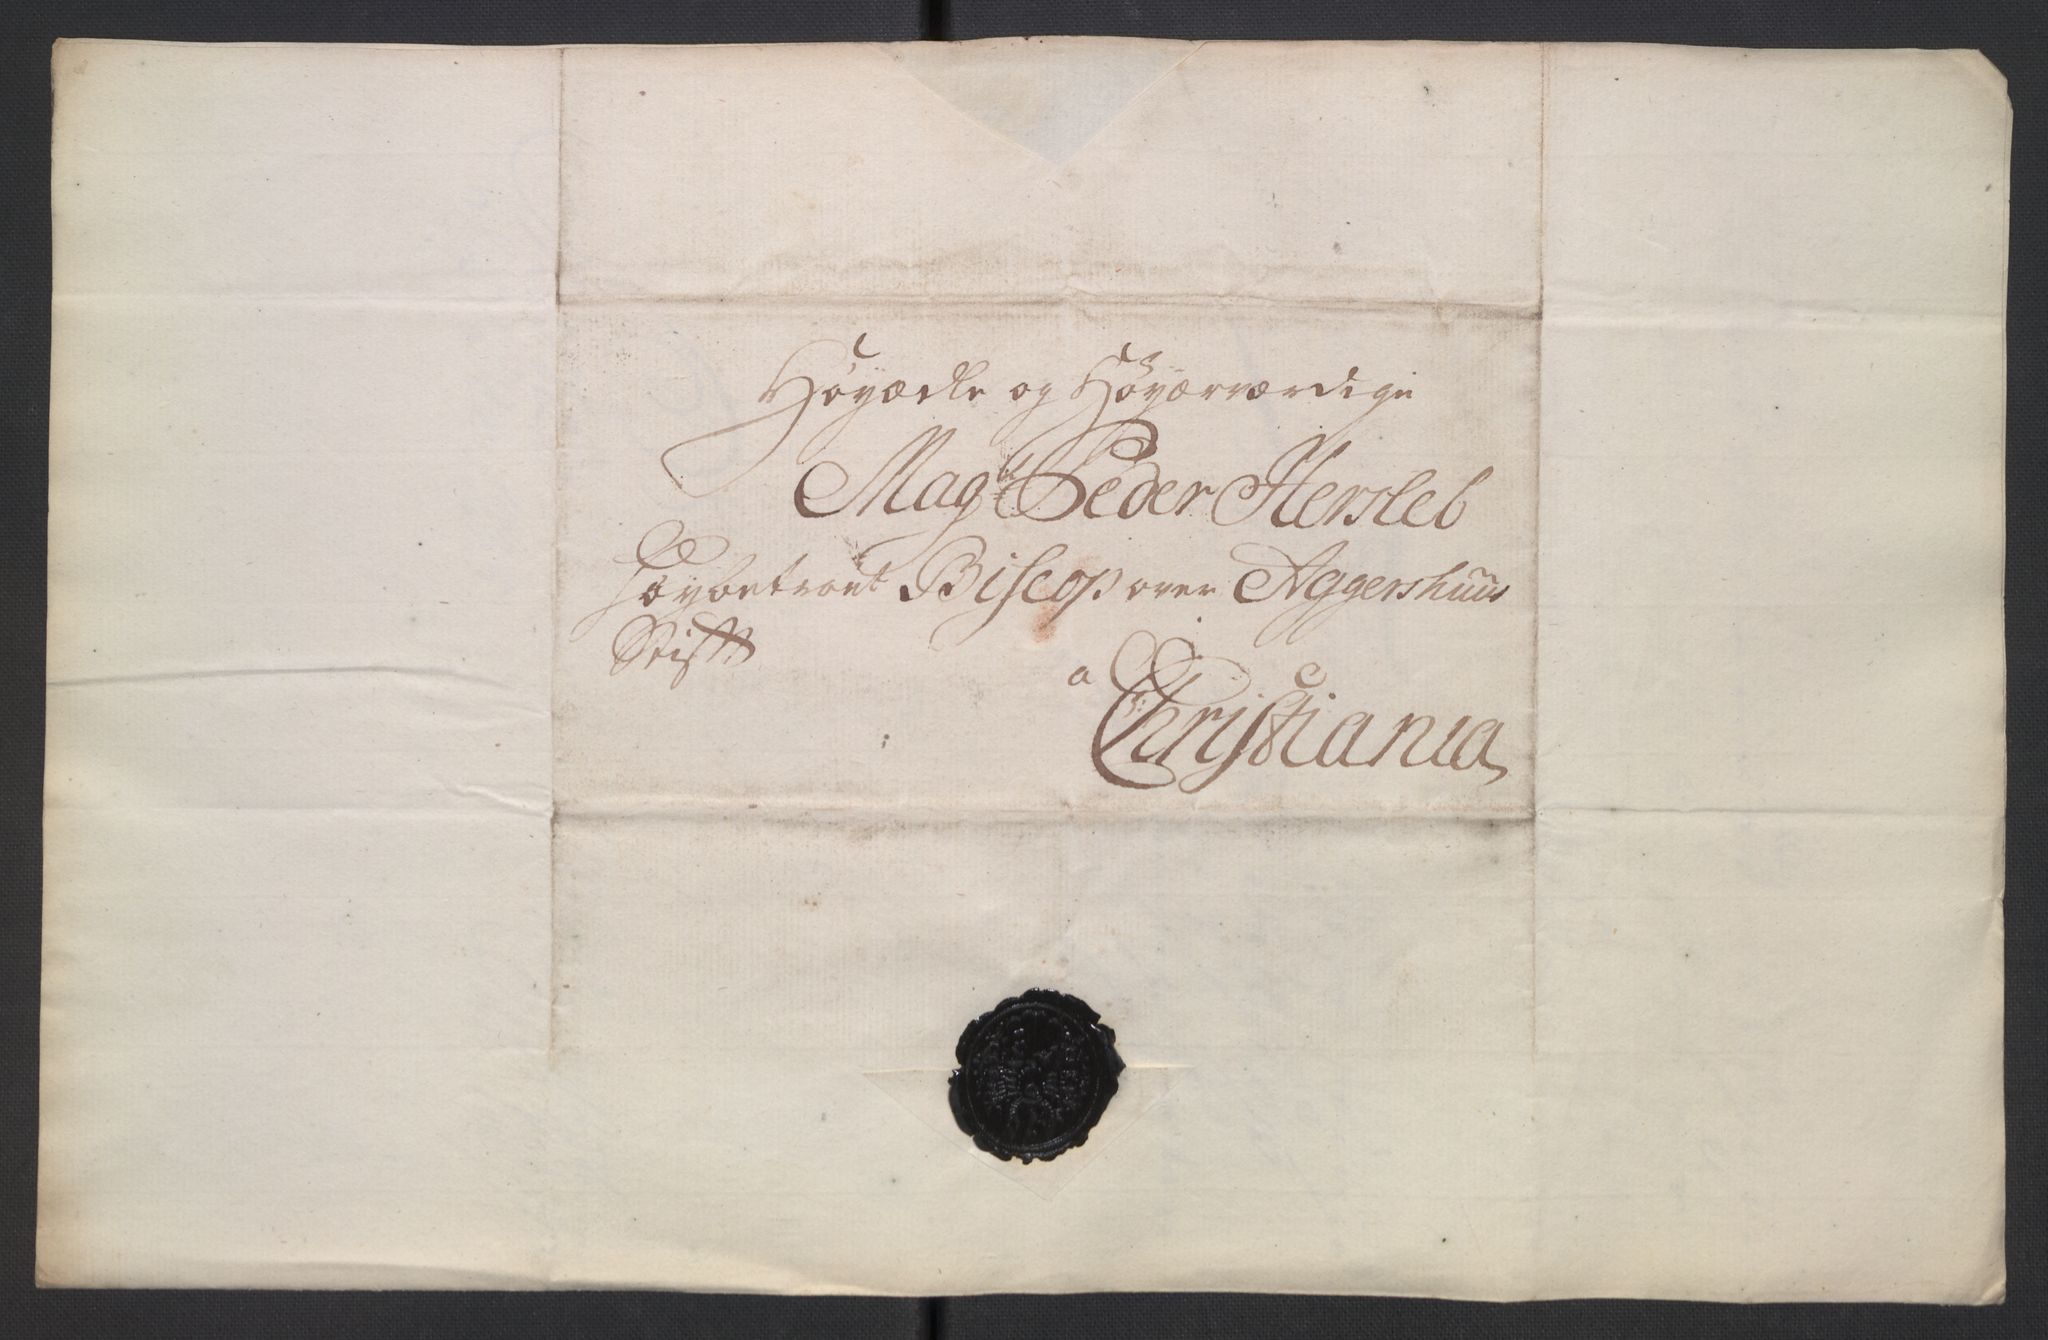 Höyædle og Höyærværdige
Mag.r Peder Hersleb
Höybetroet Biscop over Aggershuus
Stifft
a
Christiania